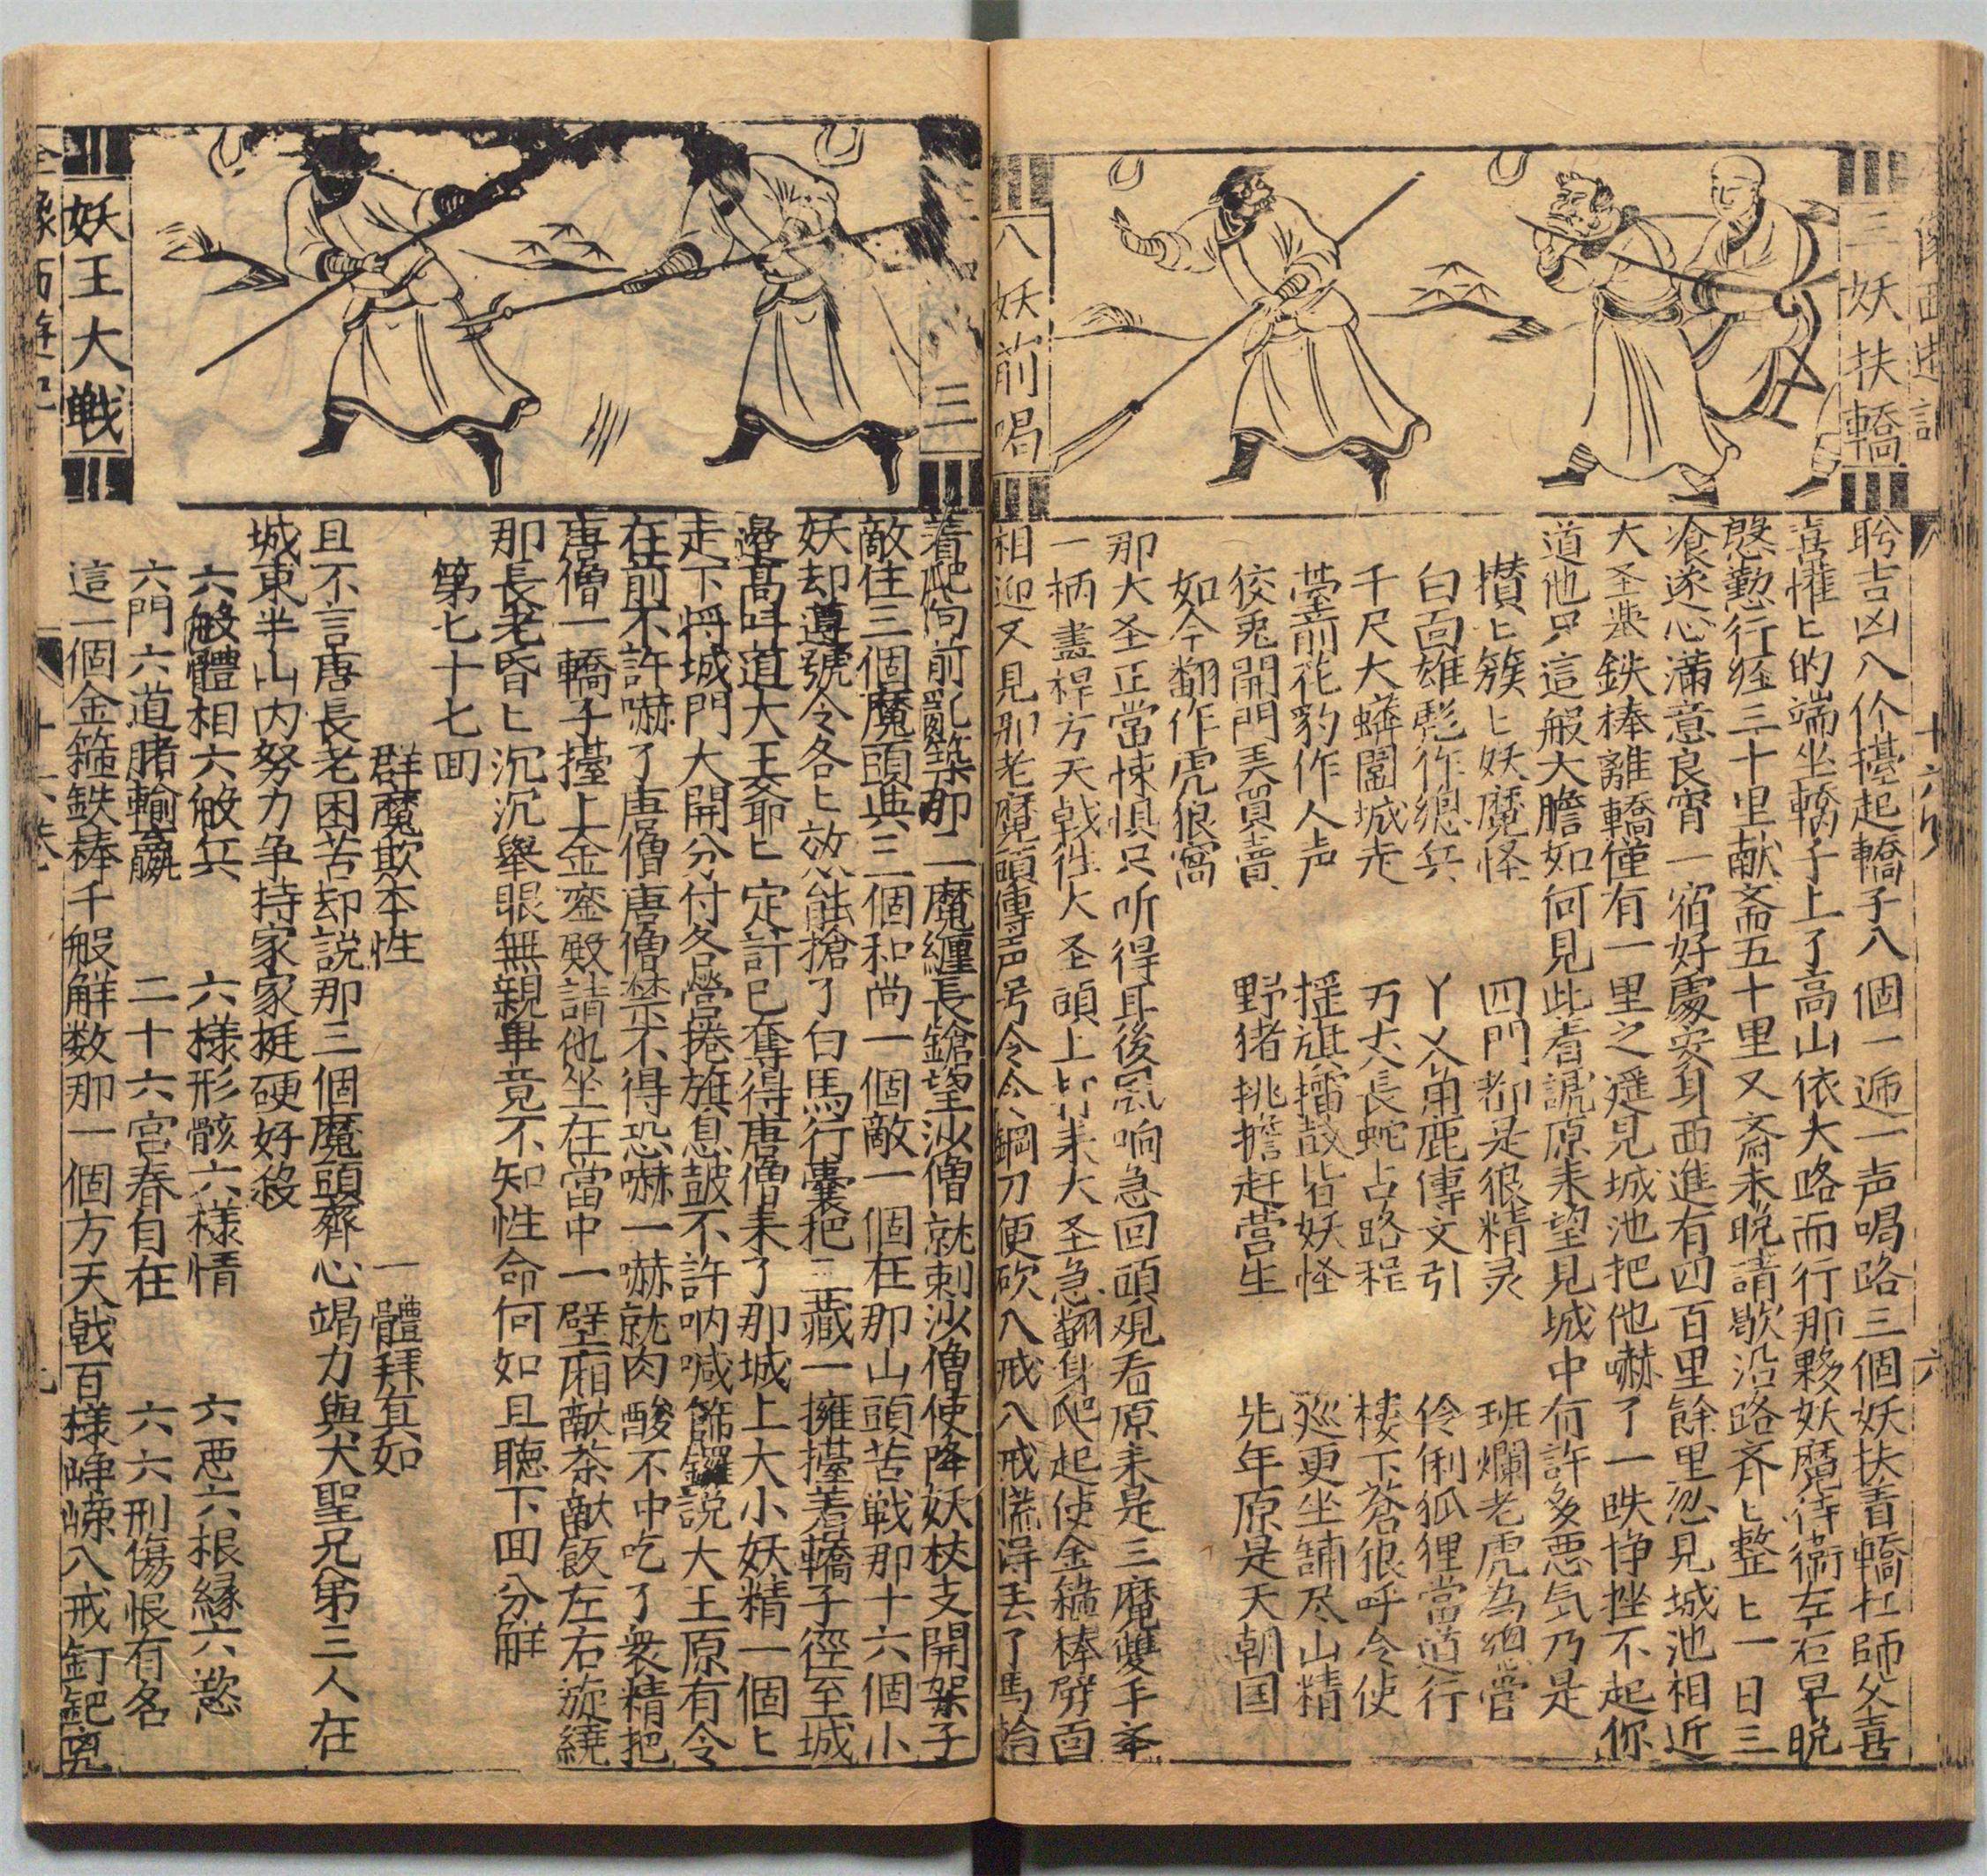 三妖扶轎
八妖前喝
聆吉凶八个擡起轎子八個一遞一声喝路三個妖扶着轎杠師父喜
喜懽〻的端坐轎子上了高山依大路而行那夥妖魔侍衛左右早晚
慇懃行经三十里献斋五十里又斋未晚請歇沿路齐〻整〻一日三
飡遂心滿意良宵一宿好處安身西進有四百里餘里忽見城池相近
大圣掣鉄棒離轎僅有一里之遥見城池把他嚇了一跌挣挫不起你
道他只這般大膽如何見此着諕原耒望見城中有許多悪気乃是
攅〻簇〻妖魔怪 四門都是狠精灵 班斕老虎為總营
白面雄彪作總兵 丫乂角鹿傳文引 伶俐狐狸當道行
千尺大蟒圍城走 万丈長蛇占路程 楼下蒼狼呼令使
䑓前花豹作人声 摇旗擂鼓皆妖怪 巡更坐舗尽山精
狡兎開門美買賣 野猪挑擔赶营生 先年原是天朝国
如今翻作虎狼窩
那大圣正當悚惧只听得耳後風响急回頭观看原耒是三魔雙手𢪛
一柄畫桿方天戟徃大圣頭上打耒大圣急翻身爬起使金箍棒劈面
相迎又見那老魔頭傳声号令令鋼刀便砍八戒八戒慌得丢了馬輪
妖王大戦
三
着爬向前亂築那二魔纏長鎗望沙僧就刺沙僧使降妖杖支開架子
敵住三個魔頭與三個和尚一個敵一個在那山頭苦戦那十六個小
妖却遵號令各〻效能搶了白馬行囊把三藏一擁擡着轎子徑至城
邉高呌道大王爺〻定計已奪得唐僧耒了那城上大小妖精一個〻
走下将城門大開分付各營捲旗息鼓不許吶喊篩鑼説大王原有令
在前不許嚇了唐僧唐僧禁不得恐嚇一嚇就肉酸不中吃了衆精把
唐僧一轎子擡上金銮殿請他坐在當中一壁廂献茶献飯左右旋繞
那長老昏〻沉沉舉眼無親畢竟不知性命何如且聴下回分解
第七十七回
群魔欺本性 一體拜真如
且不言唐長老困苦却説那三個魔頭齊心竭力與大聖兄弟三人在
城東半山内努力争持家家挺硬好殺
六般體相六般兵 六樣形骸六樣情 六悪六根緣六慾
六門六道賭輸贏 二十六宮春自在 六六刑傷恨有名
這一個金箍鉄棒千般觧数那一個方天戟百樣崢嶸八戒釘鈀兇